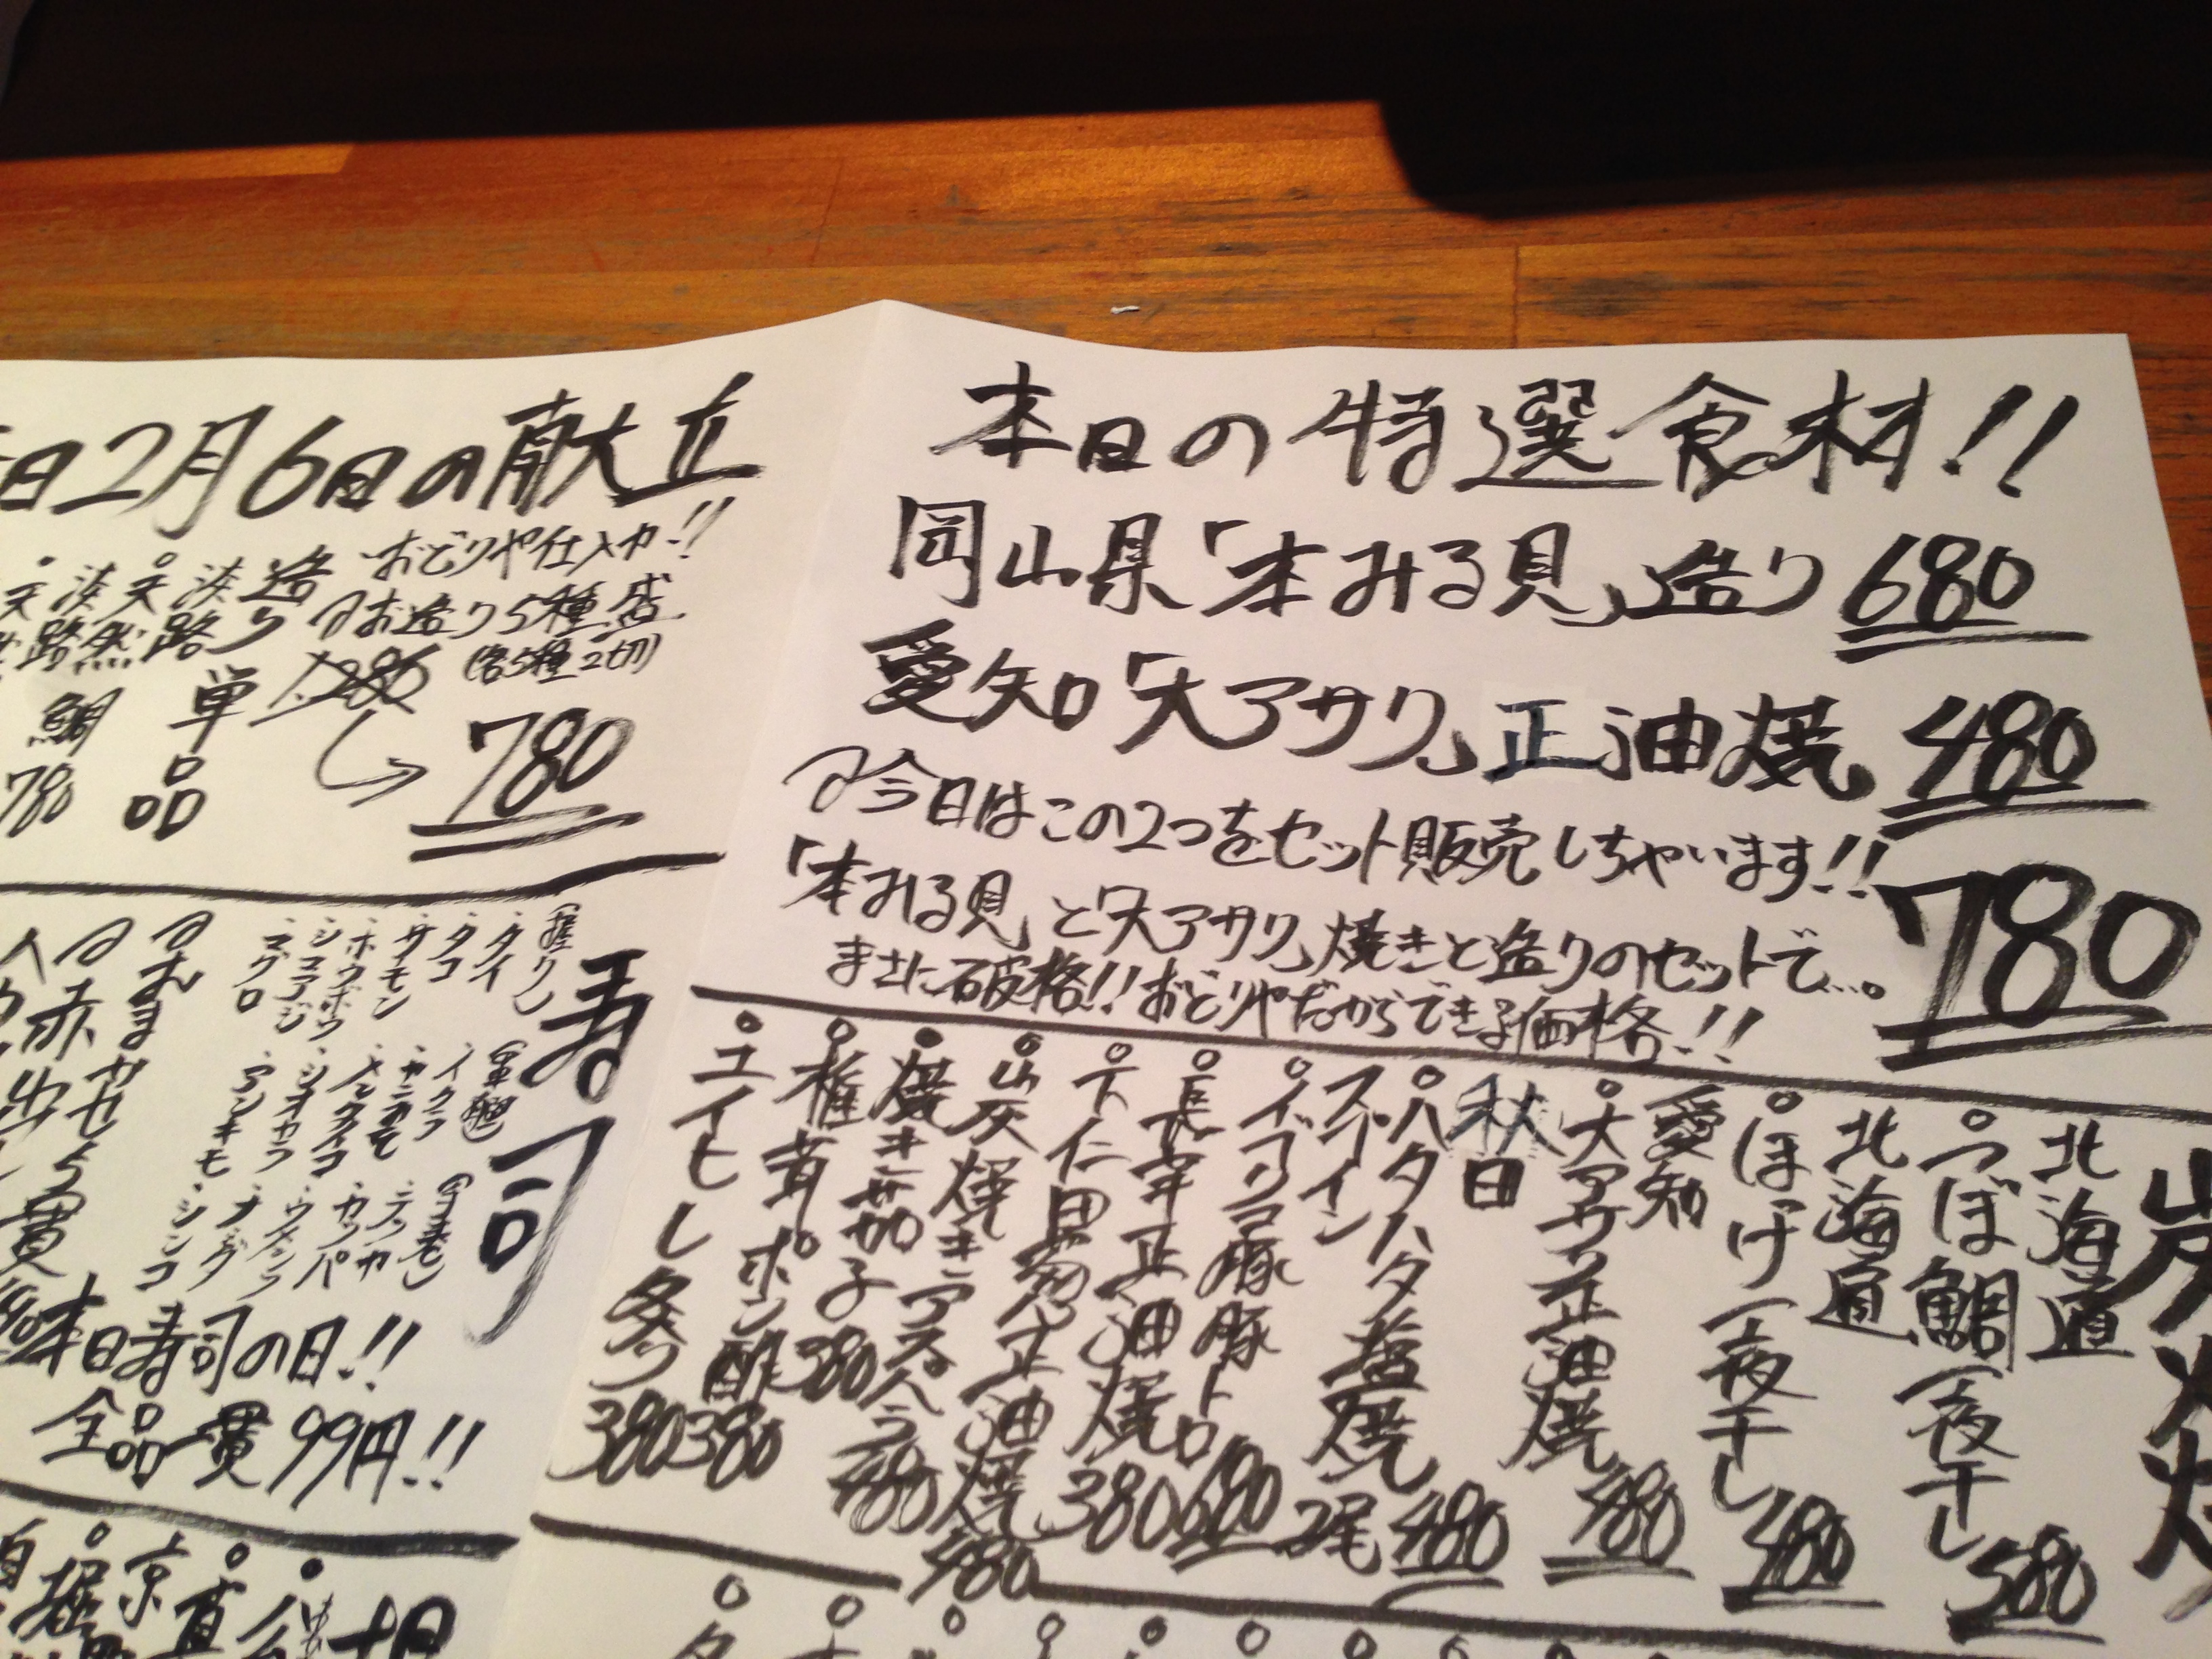 本日の特選食材!!
岡山県「本みる貝」造り 680
愛知「大アサリ」正油焼 480
今日はこの2つをセット販売しちゃいます!!
「本みる貝」と「大アサリ」焼きと造りのセットで…。 780
まさに破格!!おどりやだからできる価格!!
北海道
つぼ鯛一夜干し 580
北海道
ほっけ一夜干し 480
愛知
大アサリ正油焼 480
秋田
ハタハタ塩焼 2尾 480
スペイン
イベリコ豚豚トロ 680
長芋正油焼 380
下仁田葱正油焼 480
山灰焼きアスパラ 480
焼き茄子 380
椎茸ポン酢 380
エイヒレ炙り 380
日2月6日の献立
おどりや仕入力!!
お造り5種盛
(各5種2切)
1,280
780
造り単品
淡路
天然鯛 780
淡路
寿司
(握り)
・タイ
・タコ
・サーモン
・ホウボウ
・シマアジ
・マグロ
(軍艦)
・イクラ
・カニみそ
・メンタイコ
・シオカラ
・アンキモ
(手巻)
・テッカ
・カッパ
・ウメシソ
・ナットウ
・シンコ
おまかせ5貫
赤出し
本日寿司の日!!
全品一貫99円!!